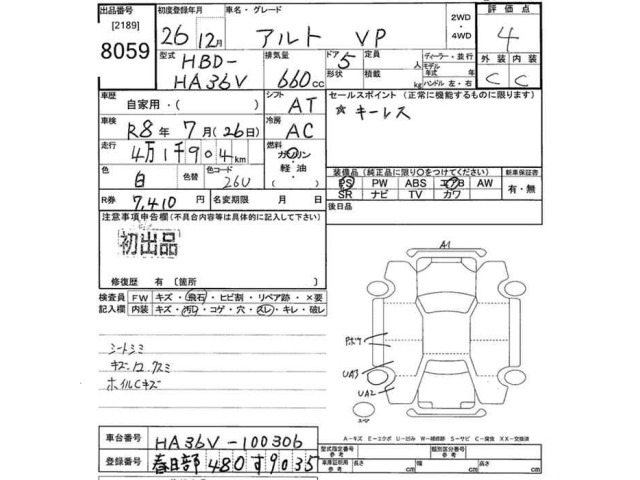 出品番号 初度登録年月 車名・グレード 評価点
[2189] 26年12月 アルト VP 2WD・4WD 4
8059 型式 排気量 ドア 定員 ディーラー・並行 外装 内装
HBD-HA36V 660cc 5 形状 積載 kg モデル年式 年 ハンドル 左・右 C C
車歴 自家用・( ) シフト AT セールスポイント (正常に機能するものに限ります)
車検 R8年7月(26日) 冷房 AC ☆キーレス
走行 4万1千904km 燃料 ガソリン 軽油・
色 白 色替 色コード 26U 装備品 (純正品に限り○をつけてください) 新車保証書
PS PW ABS エアB AW 有・無
SR ナビ TV カワ
R券 7,410円 名変期限 月 日 後日品
注意事項申告欄 (不具合内容等は具体的に記入して下さい)
初出品
修復歴 有 [箇所 ]
検査員記入欄 FW キズ・飛石・ヒビ割・リペア跡・×要
内装 キズ・汚れ・コゲ・穴・スレ・キレ・破レ
シートシミ
ホイルCキズ
A1
UA3
UA2
A-キズ E-エクボ U-凹ミ W-補修跡 S-サビ C-腐食 XX-交換済
車台番号 HA36V-100306
登録番号 春日部 480 す 9035
型式指定番号 参考 類別区分番号 参考
車庫証明用 参考 長さ cm 幅 cm 高さ cm